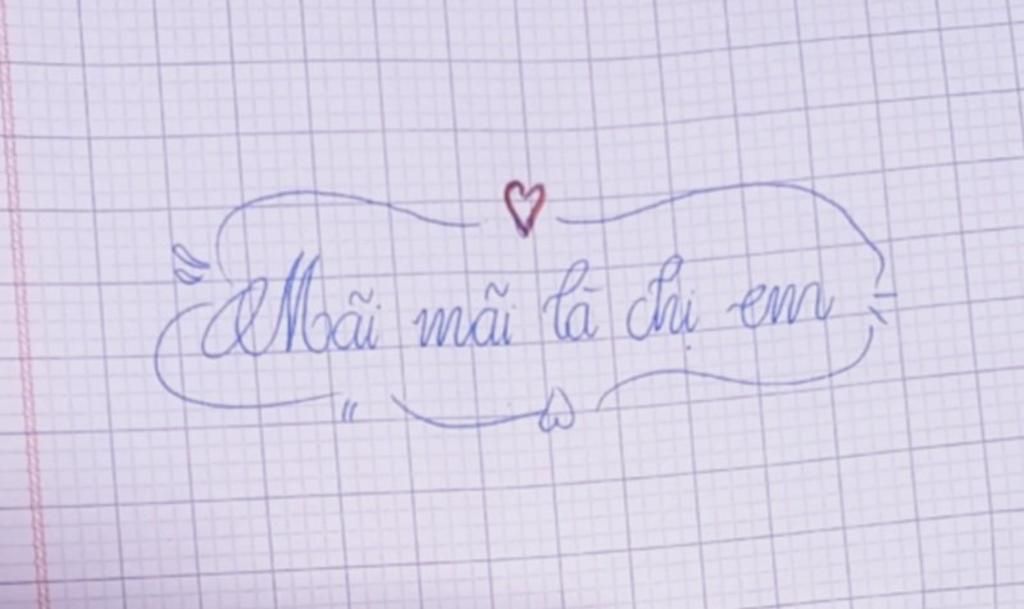 Mãi mãi là chị em